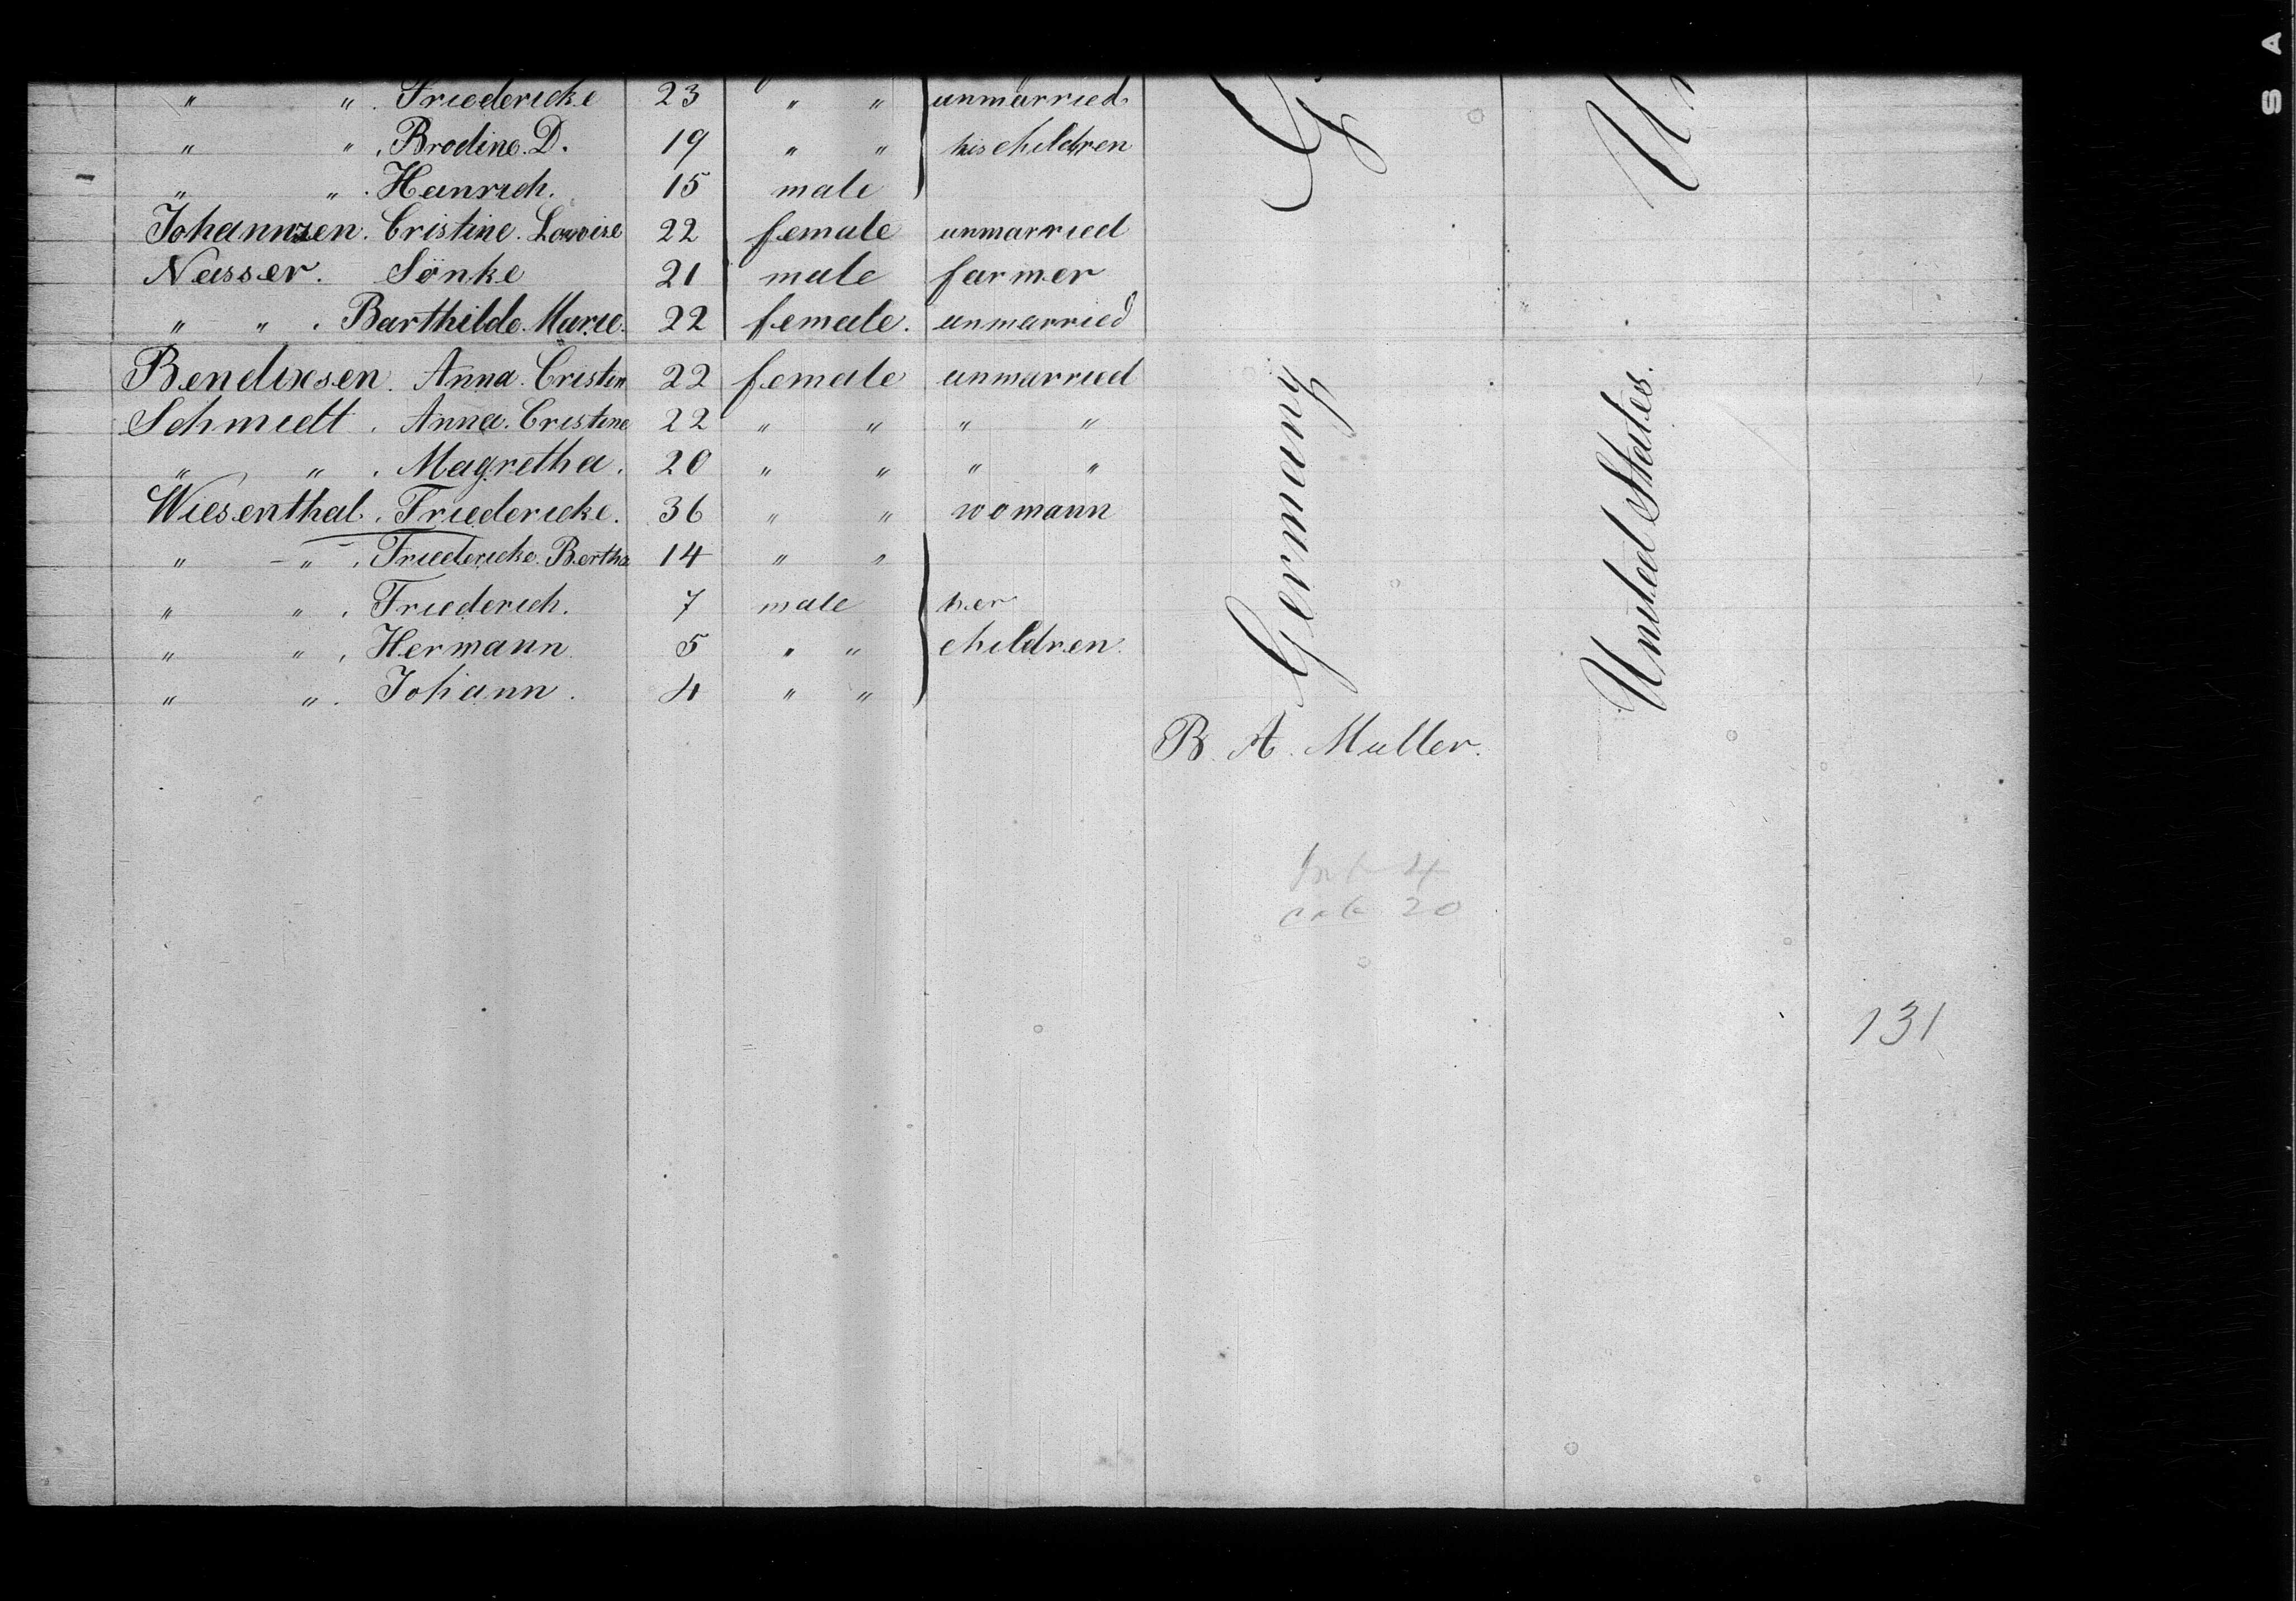 " " . Friedericke 23 " " unmarried
" " . Brodine. D. 19 " " his children
" " . Heinrich. 15 male
Johannzen. Cristine. Lowise 22 female unmarried
Nasser. Sönke 21 male farmer
" " . Barthilde. Marie. 22 female. unmarried
Bendixsen. Anna. Cristin 22 female unmarried
Schmidt . Anna. Cristine 22 " " " "
" " . Magretha. 20 " " " "
Wiesenthal. Friedericke. 36 " " womann
" " . Friedericke. Bertha 14 " "
" " . Friederich. 7 male her
" " . Hermann 5 " " children.
" " . Johann. 4 " "
Germany
United States.
B. A. Muller.
4
20
131
S A